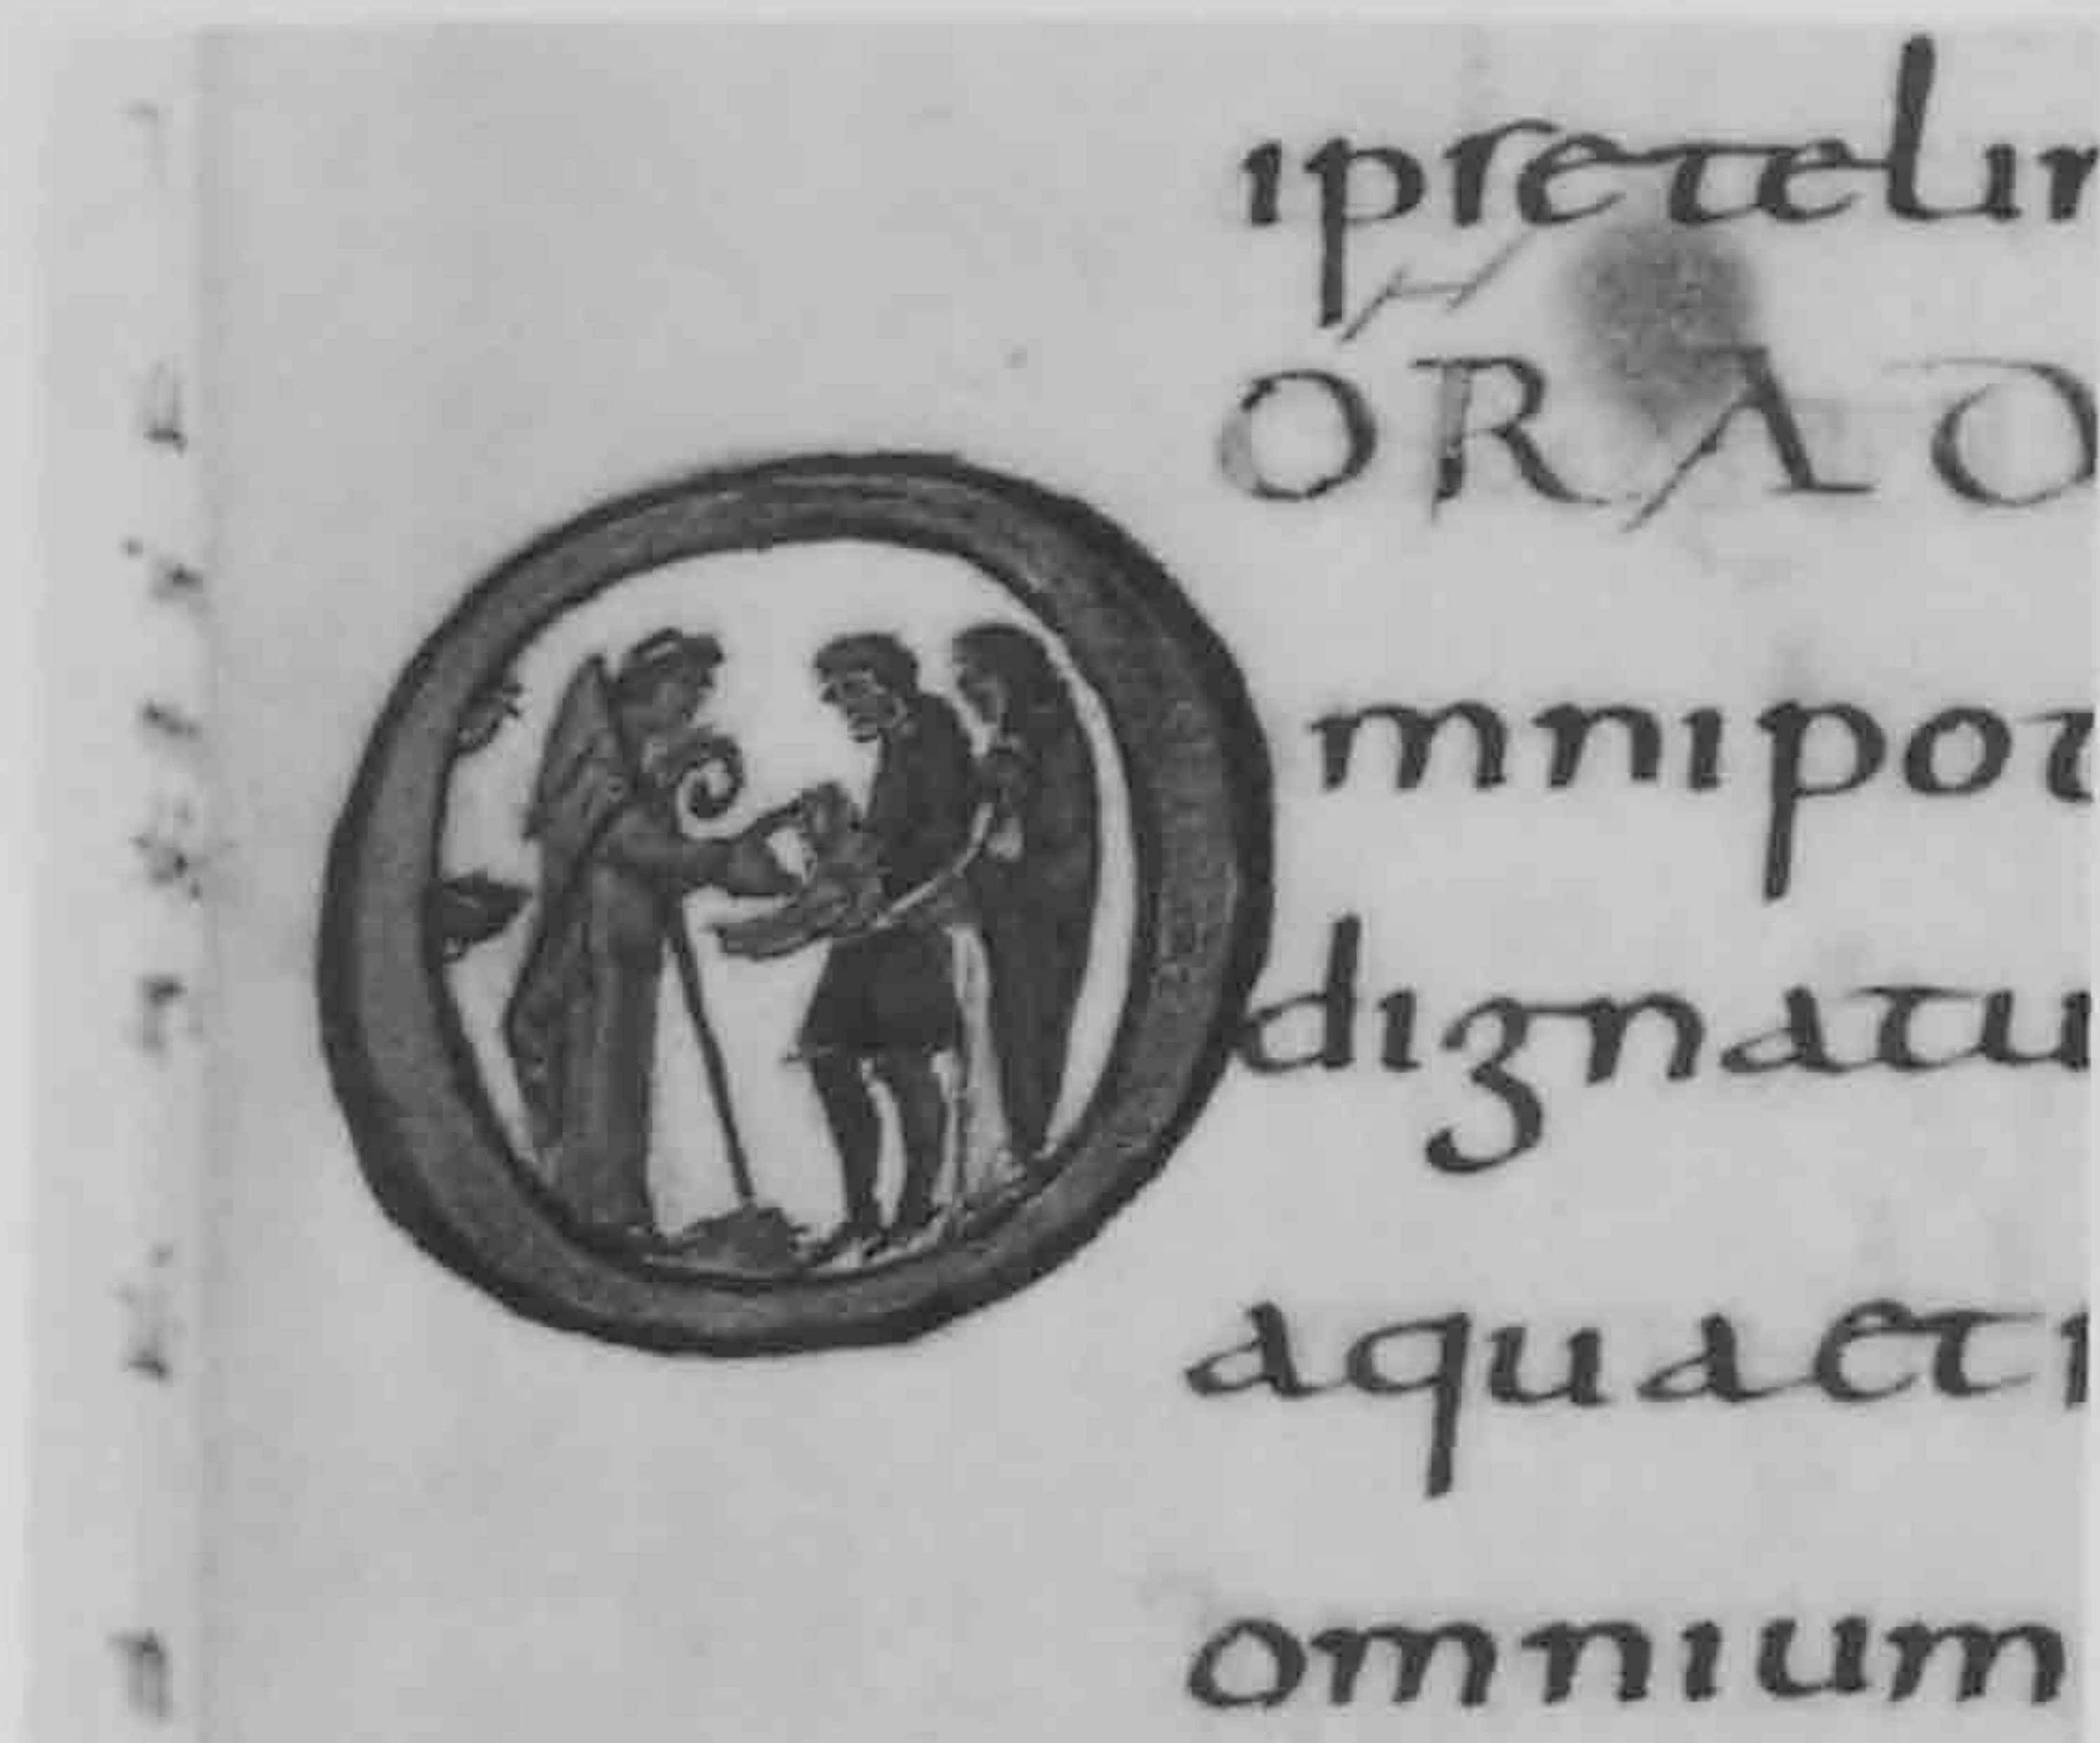 ipse telin
ORAO
Omnipot
dignatu
aqua et i
omnium